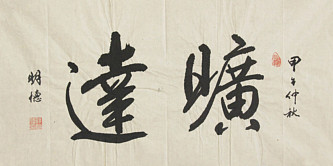 甲午仲秋
曠達
明德